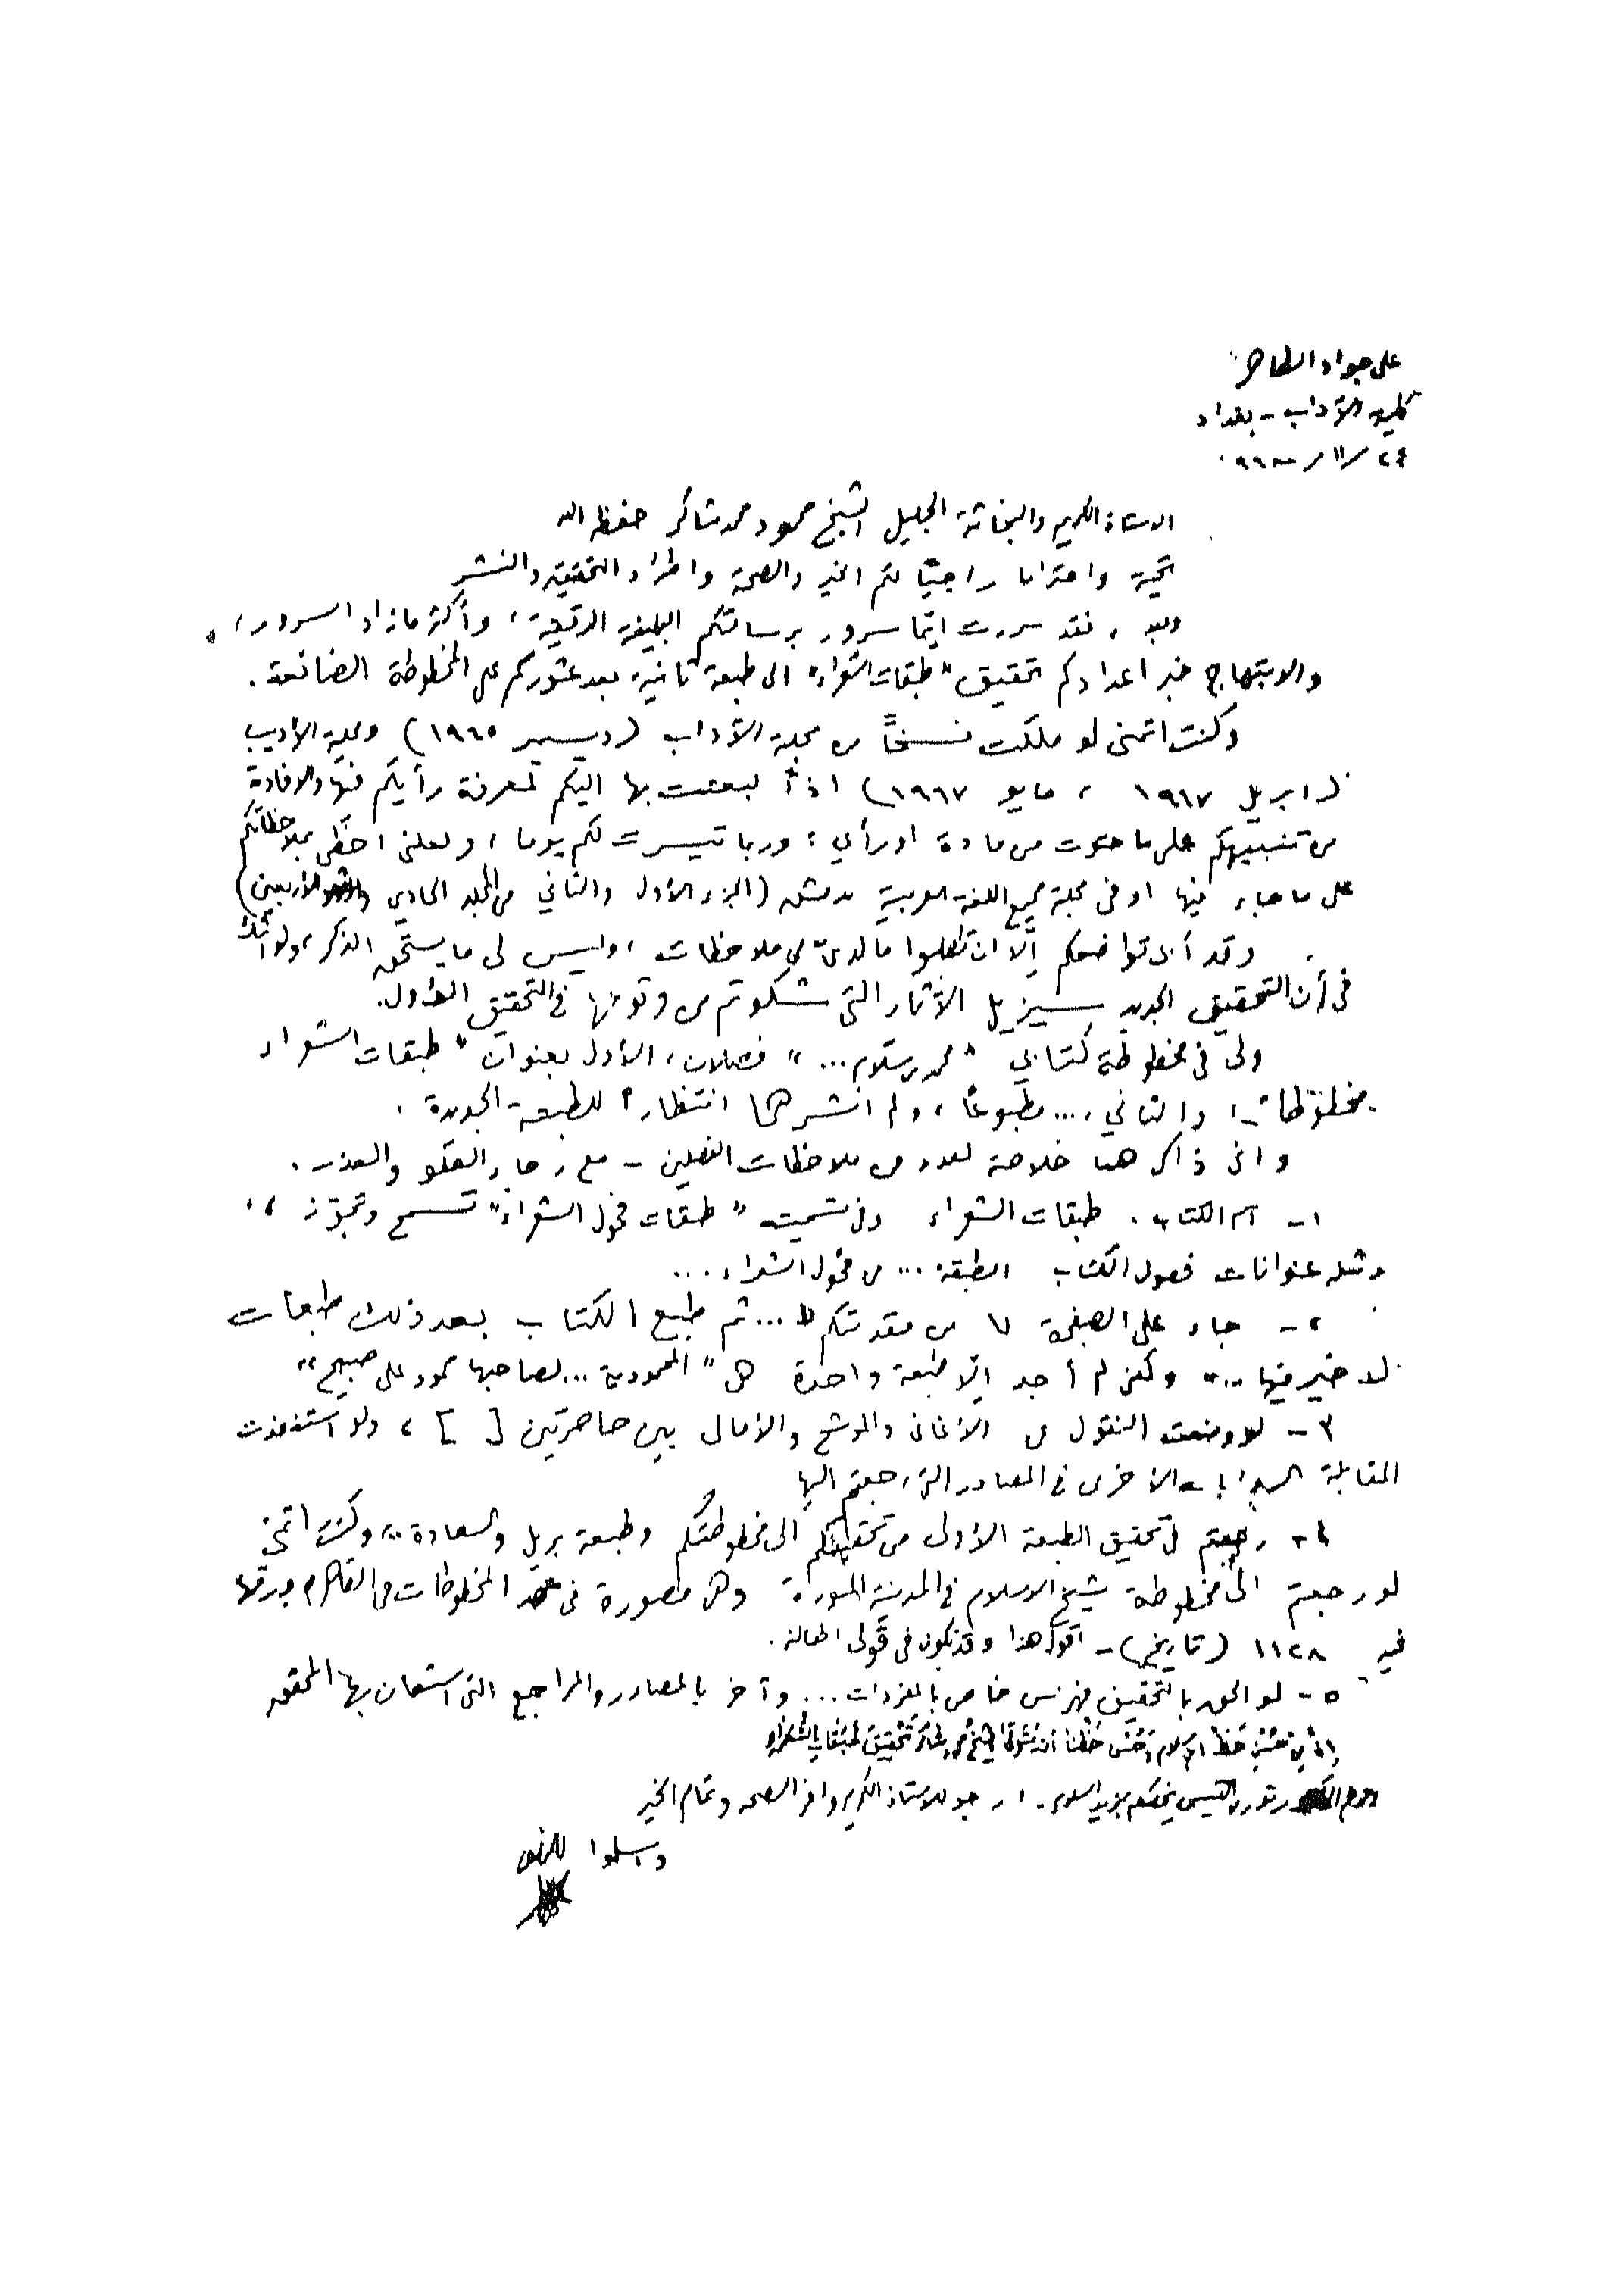 علي جواد الطاهر
كلية الآداب - بغداد
٢٤ / ١١ / ٩٦٨
الاستاذ الكريم والبحاثة الجليل الشيخ محمود محمد شاكر حفظه الله
تحية واحتراما راجيًا لكم الخير والصحة واطراد التحقيق والنشر
وبعد ، فقد سررت ايّما سرور برسالتكم البليغة الرقيقة ، وأكثر ما زاد السرور ،
والابتهاج خبر اعدادكم تحقيق "طبقات الشعراء" الى طبعة ثانية بعد عثوركم على المخطوطة الضائعة .
وكنت اتمنى لو ملكت نسخاً من مجلة الآداب (ديسمبر ١٩٦٥) ومجلة الأديب
(ابريل ١٩٦٧ ، مايو ١٩٦٧) اذاً لبعثت بها اليكم لمعرفة رأيكم فيها والافادة
من تنبيهكم على ما حوت من مادة او رأي ؛ وربما تيسرت لكم يوما ، ولعلني احظى بملاحظاتكم
على ما جاء فيها او في مجلة مجمع اللغة العربية بدمشق (الجزء الأول والثاني من المجلد الحادي والأربعين)
وقد أبى تواضعكم إلّا ان تطلبوا ما لديّ من ملاحظات ، وليس لي ما يستحق الذكر ، ولا أشك
في أن التحقيق الجديد سيزيل الآثار التي شكوتم من وقوعها في التحقيق الأول .
ولي في مخطوطة كتابي "محمد بن سلام ..." فصلان ، الأول بعنوان "طبقات الشعراء
مخطوطات ، والثاني ، ... مطبوعاً ، ولم انشرهما انتظاراً للطبعة الجديدة .
واني ذاكر هنا خلاصة لعدد من ملاحظات الفصلين - مع رجاء العفو والعذر .
١ - اسم الكتاب . طبقات الشعراء وفي تسميته "طبقات فحول الشعراء" تسمح وتجوّز ،
ومثله عنوانات فصول الكتاب الطبقة ... من فحول الشعراء ...
٢ - جاء على الصفحة ٧ من مقدمتكم "... ثم طبع الكتاب بعد ذلك طبعات
لا خير فيها ..." ولكني لم أجد إلّا طبعة واحدة هي "المحمودية ... لصاحبها محمود علي صبيح"
٣ - لو وضعت النقول من الأغاني والموشح والأمالي بين حاصرتين [ ] ، ولو استنفذت
المقابلة الروايات الأخرى في المصادر التي رجعتم اليها
٤ - رجعتم في تحقيق الطبعة الأولى من تحقيقكم الى مخطوطتكم وطبعة بريل والسعادة .. وكنت اتمنى
لو رجعتم الى مخطوطة شيخ الاسلام في المدينة المنورة وهي مصورة في معهد المخطوطات في القاهرة ورقمها
فيه ١١٢٨ (تاريخ) - اقول هذا وقد يكون في قولي اطالة .
٥ - لو الحق بالتحقيق فهرس خاص بالمفردات ... وآخر بالمصادر والمراجع التي استعان بها المحقق
إن من حسن حظ ابن سلام وحسن حظنا أن يتولى الشيخ محمود شاكر تحقيق طبقات الشعراء
نوري القيسي يخصكم بمزيد السلام . ارجو للاستاذ الكريم وافر الصحة وتمام الخير
واسلموا للمخلص